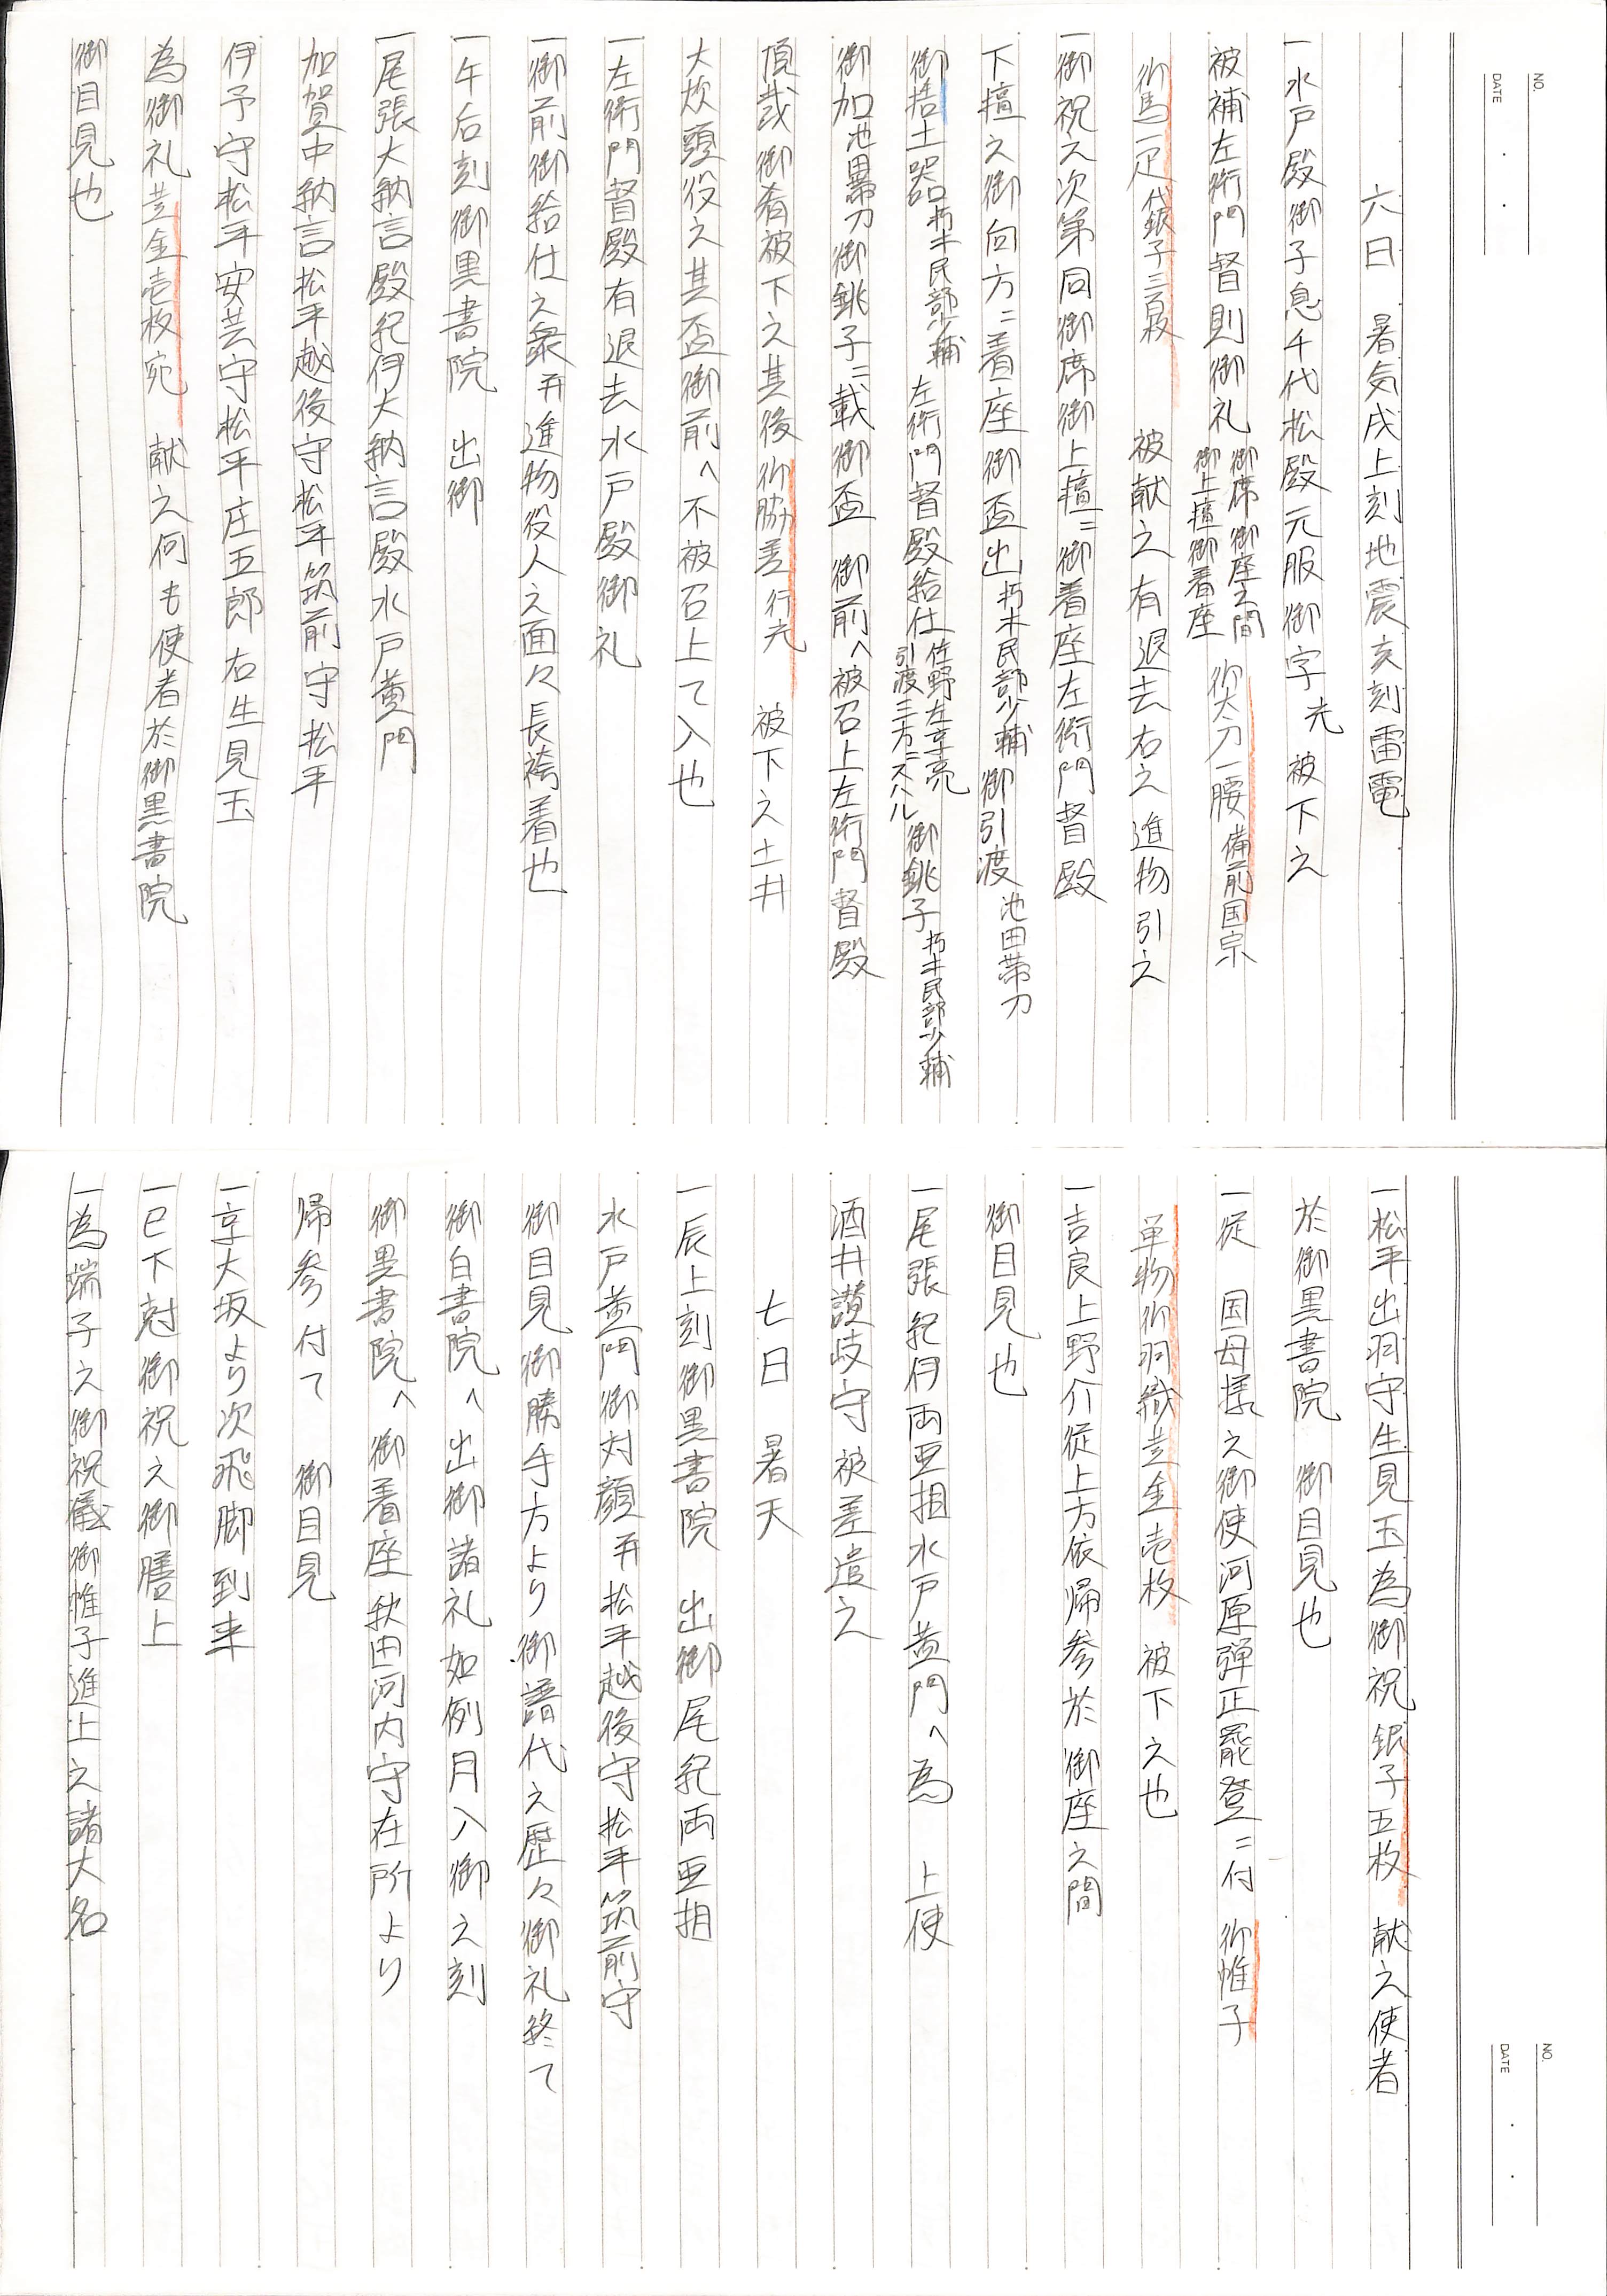 NO.
DATE
六日　暑気戌上刻地震亥刻雷電
一水戸殿御子息千代松殿元服御字光被下之
被補左衛門督則御礼 御席御座之間 御上壇御着座 御太刀一腰備前国宗
御馬一疋代銀子三百枚　被献之有退去右之進物引之
一御祝之次第同御席御上壇ニ御着座左衛門督殿
下壇之御向方ニ着座御盃出 朽木民部少輔 御引渡 池田帯刀
御捨土器 朽木民部少輔 左衛門督殿給仕 佐野左京亮 引渡三方ニスハル 御銚子 朽木民部少輔
御加 池田帯刀 御銚子ニ載御盃　御前へ被召上左衛門督殿
頂戴御肴被下之其後御脇差行光　被下之土井
大炊頭役之其盃御前へ不被召上て入也
一左衛門督殿有退去水戸殿御礼
一御前御給仕之衆并進物役人之面々長袴着也
一午后刻御黒書院　出御
一尾張大納言殿紀伊大納言殿水戸黄門
加賀中納言松平越後守松平筑前守松平
伊予守松平安芸守松平庄五郎右生見玉
為御礼並金壱枚宛　献之何も使者於御黒書院
御目見也
NO.
DATE
一松平出羽守生見玉為御祝銀子五枚　献之使者
於御黒書院　御目見也
一従　国母様之御使河原弾正罷登ニ付　御帷子
単物御羽織並金壱枚　被下之也
一吉良上野介従上方依帰参於　御座之間
御目見也
一尾張紀伊両亜相水戸黄門へ為　上使
酒井讃岐守被差遣之
七日　暑天
一辰上刻御黒書院　出御尾紀両亜相
水戸黄門御対顔并松平越後守松平筑前守
御目見御勝手方より御譜代之歴々御礼終て
御白書院へ出御諸礼如例月入御之刻
御黒書院へ御着座秋田河内守在所より
帰参付て　御目見
一京大坂より次飛脚到来
一巳下尅御祝之御膳上
一為端子之御祝儀御帷子進上之諸大名